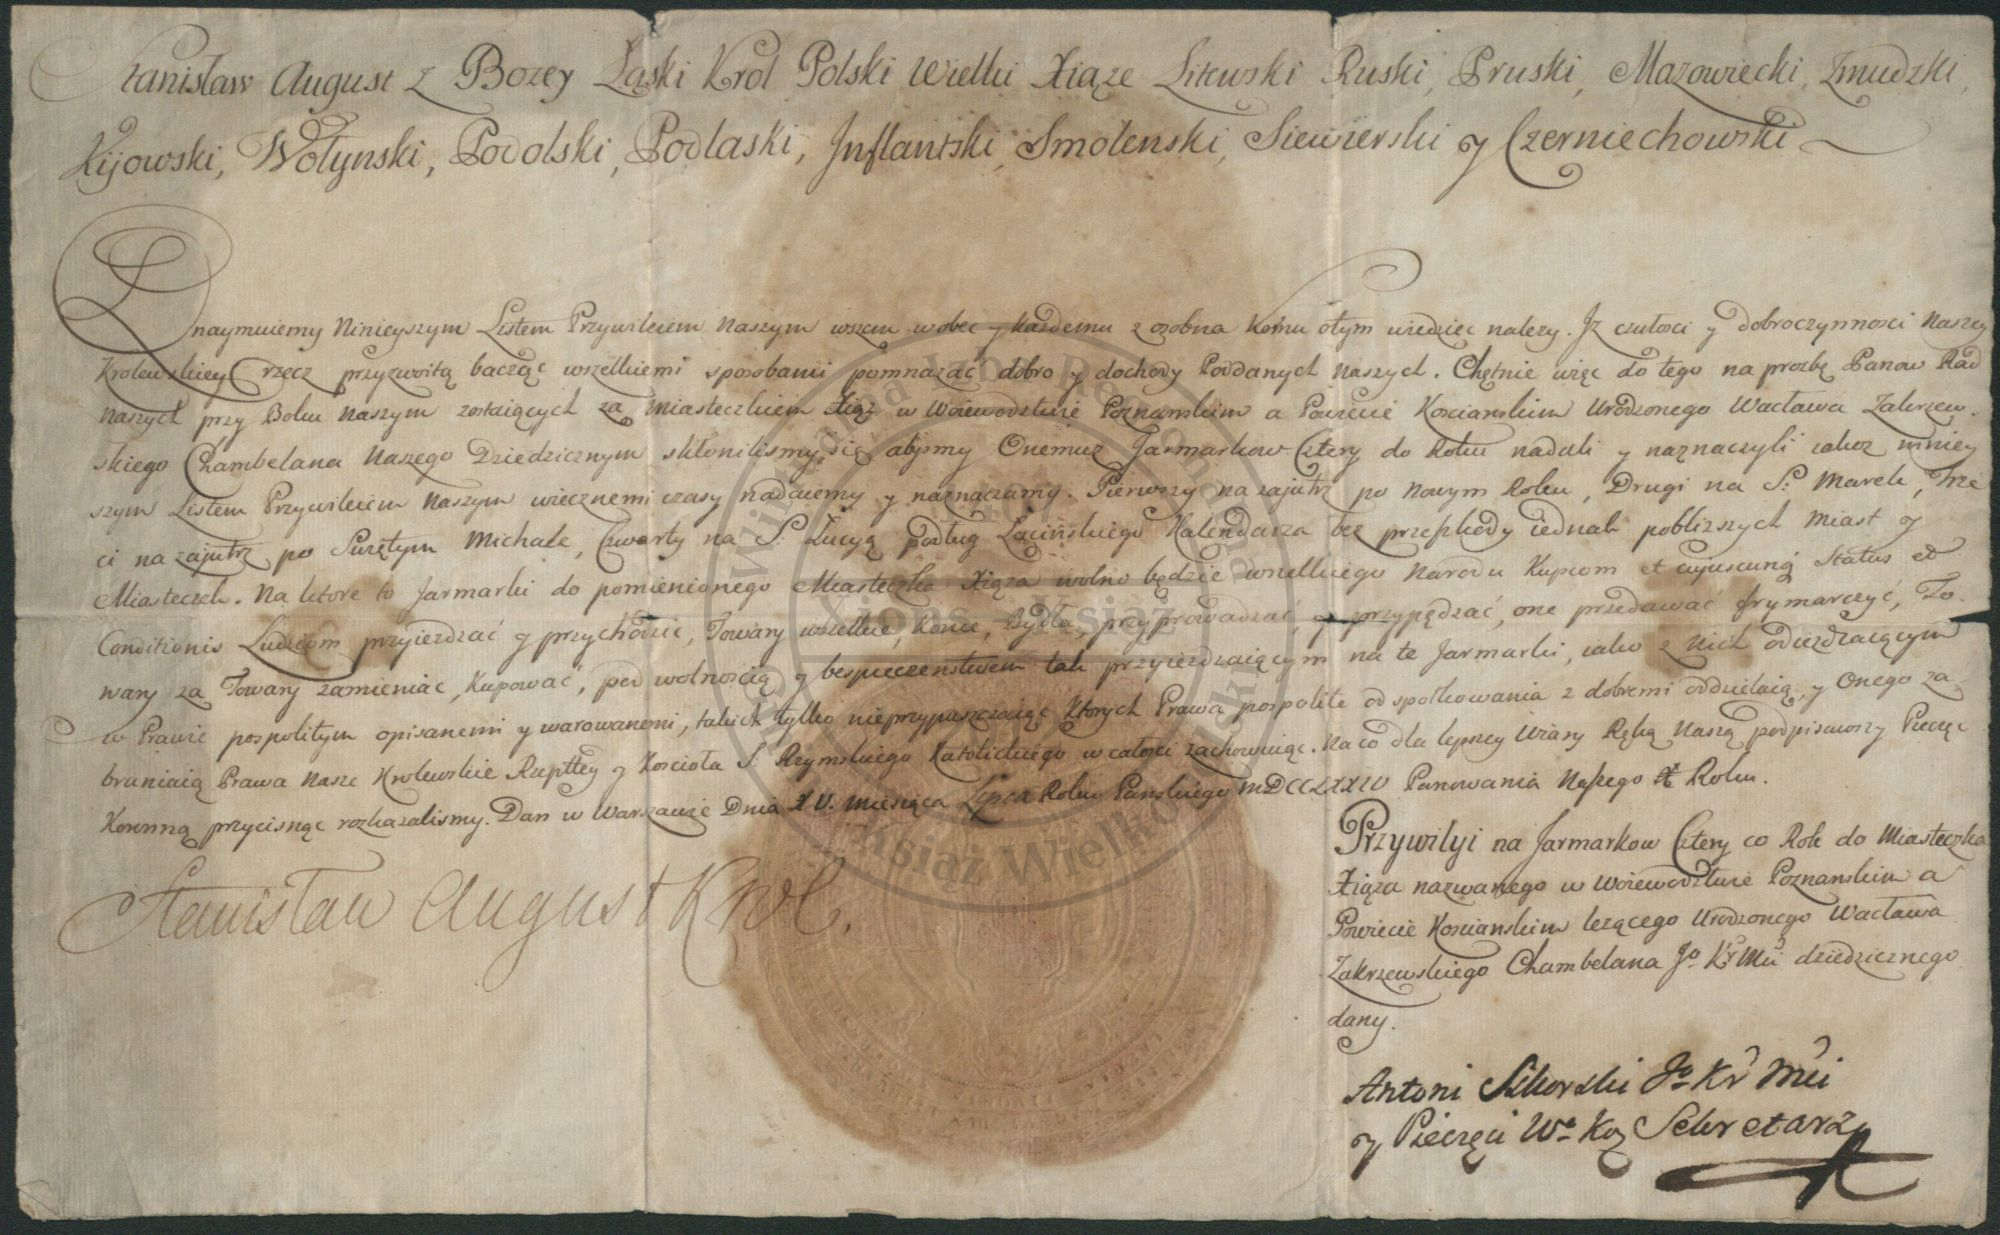 Stanisław August z Bozey Łaski Krol Polski Wielki Xiąże Litewski Ruski, Pruski, Mazowiecki, Zmudzki,
Kijowski, Wołynski, Podolski, Podlaski, Inflantski, Smolenski, Siewierski y Czerniechowski
Oznaymuiemy Ninieyszym Listem Przywileiem Naszym wszem wobec y każdemu z osobna komu otym wiedziec nalezy. Iz czułosci y dobroczynnosci Naszey
Krolewskiey rzecz przyzwoitą bacząc wszelkiemi sposobami pomnażać dobro y dochody Poddanych naszych. Chętnie więc do tego na prozbę Panow Rad
Naszych przy Boku Naszym zostaiących za Miasteczkiem Xiąż w Woiewodztwie Poznanskim a Powiecie Kosciańskim Urodzonego Wacława Zakrzew-
skiego Chambelana Naszego Dziedzicznym skłonilismy się abysmy Onemuż Jarmarkow Cztery do Roku nadali y naznaczyli iakoż niniey
szym Listem Przywileiem Naszym wiecznemi czasy nadaiemy y naznaczamy. Pierwszy na zajutrz po Nowym Roku, Drugi na S. Marek, Trze
ci na zajutrz po Swiętym Michale, Czwarty na S. Łucyą podług Łacińskiego Kalendarza bez przeszkody iednak poblizszych Miast y
Miasteczek. Na ktore to Jarmarki do pomienionego Miasteczka Xiąża wolno będzie wszelkiego Narodu Kupcom et cujuscunq Status et
Conditionis Ludziom przyiezdzać y przychodzic, Towary wszelkie, Konie, Bydła, przyprowadzać, y przypędzać, one przedawać frymarczyć, To-
wary za Towary zamieniac, Kupować, pod wolnoscią y bespieczenstwem tak przyiezdzaiącym na te Jarmarki, iako z nich odiezdzaiącym
w Prawie pospolitym opisanemi y warowanemi, takich tylko nieprzypuszczaiąc ktorych Prawa pospolite od społkowania z dobremi oddzielaią, y Onego za-
braniaią Prawa Nasze Krolewskie Rzeptley y Koscioła S. Rzymskiego Katolickiego w całosci zachowuiąc. Na co dla lepszey Wiary Ręką Naszą podpisawszy Pieczęc
Koronną przycisnąc rozkazalismy. Dan w Warszawie Dnia XV. Miesiąca Lipca Roku Panskiego MDCCLXXIV Panowania Naszego X Roku.
Stanisław August Krol.
Przywilyi na Jarmarkow Cztery co Rok do Miasteczka
Xiąża nazwanego w Woiewodztwie Poznanskim a
Powiecie Kosciańskim lezącego Urodzonego Wacława
Zakrzewskiego Chambelana Jo Kr Mci dziedzicznego
dany.
Antoni Sikorski Jo Kr Mci
y Pieczęci Wo Ko Sekretarz